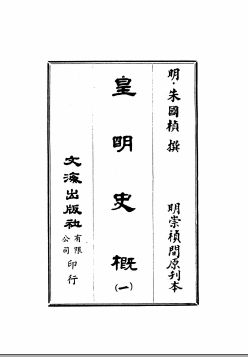 明·朱國楨 撰 明崇禎間原刊本
皇明史概(一)
文海出版社有限公司印行